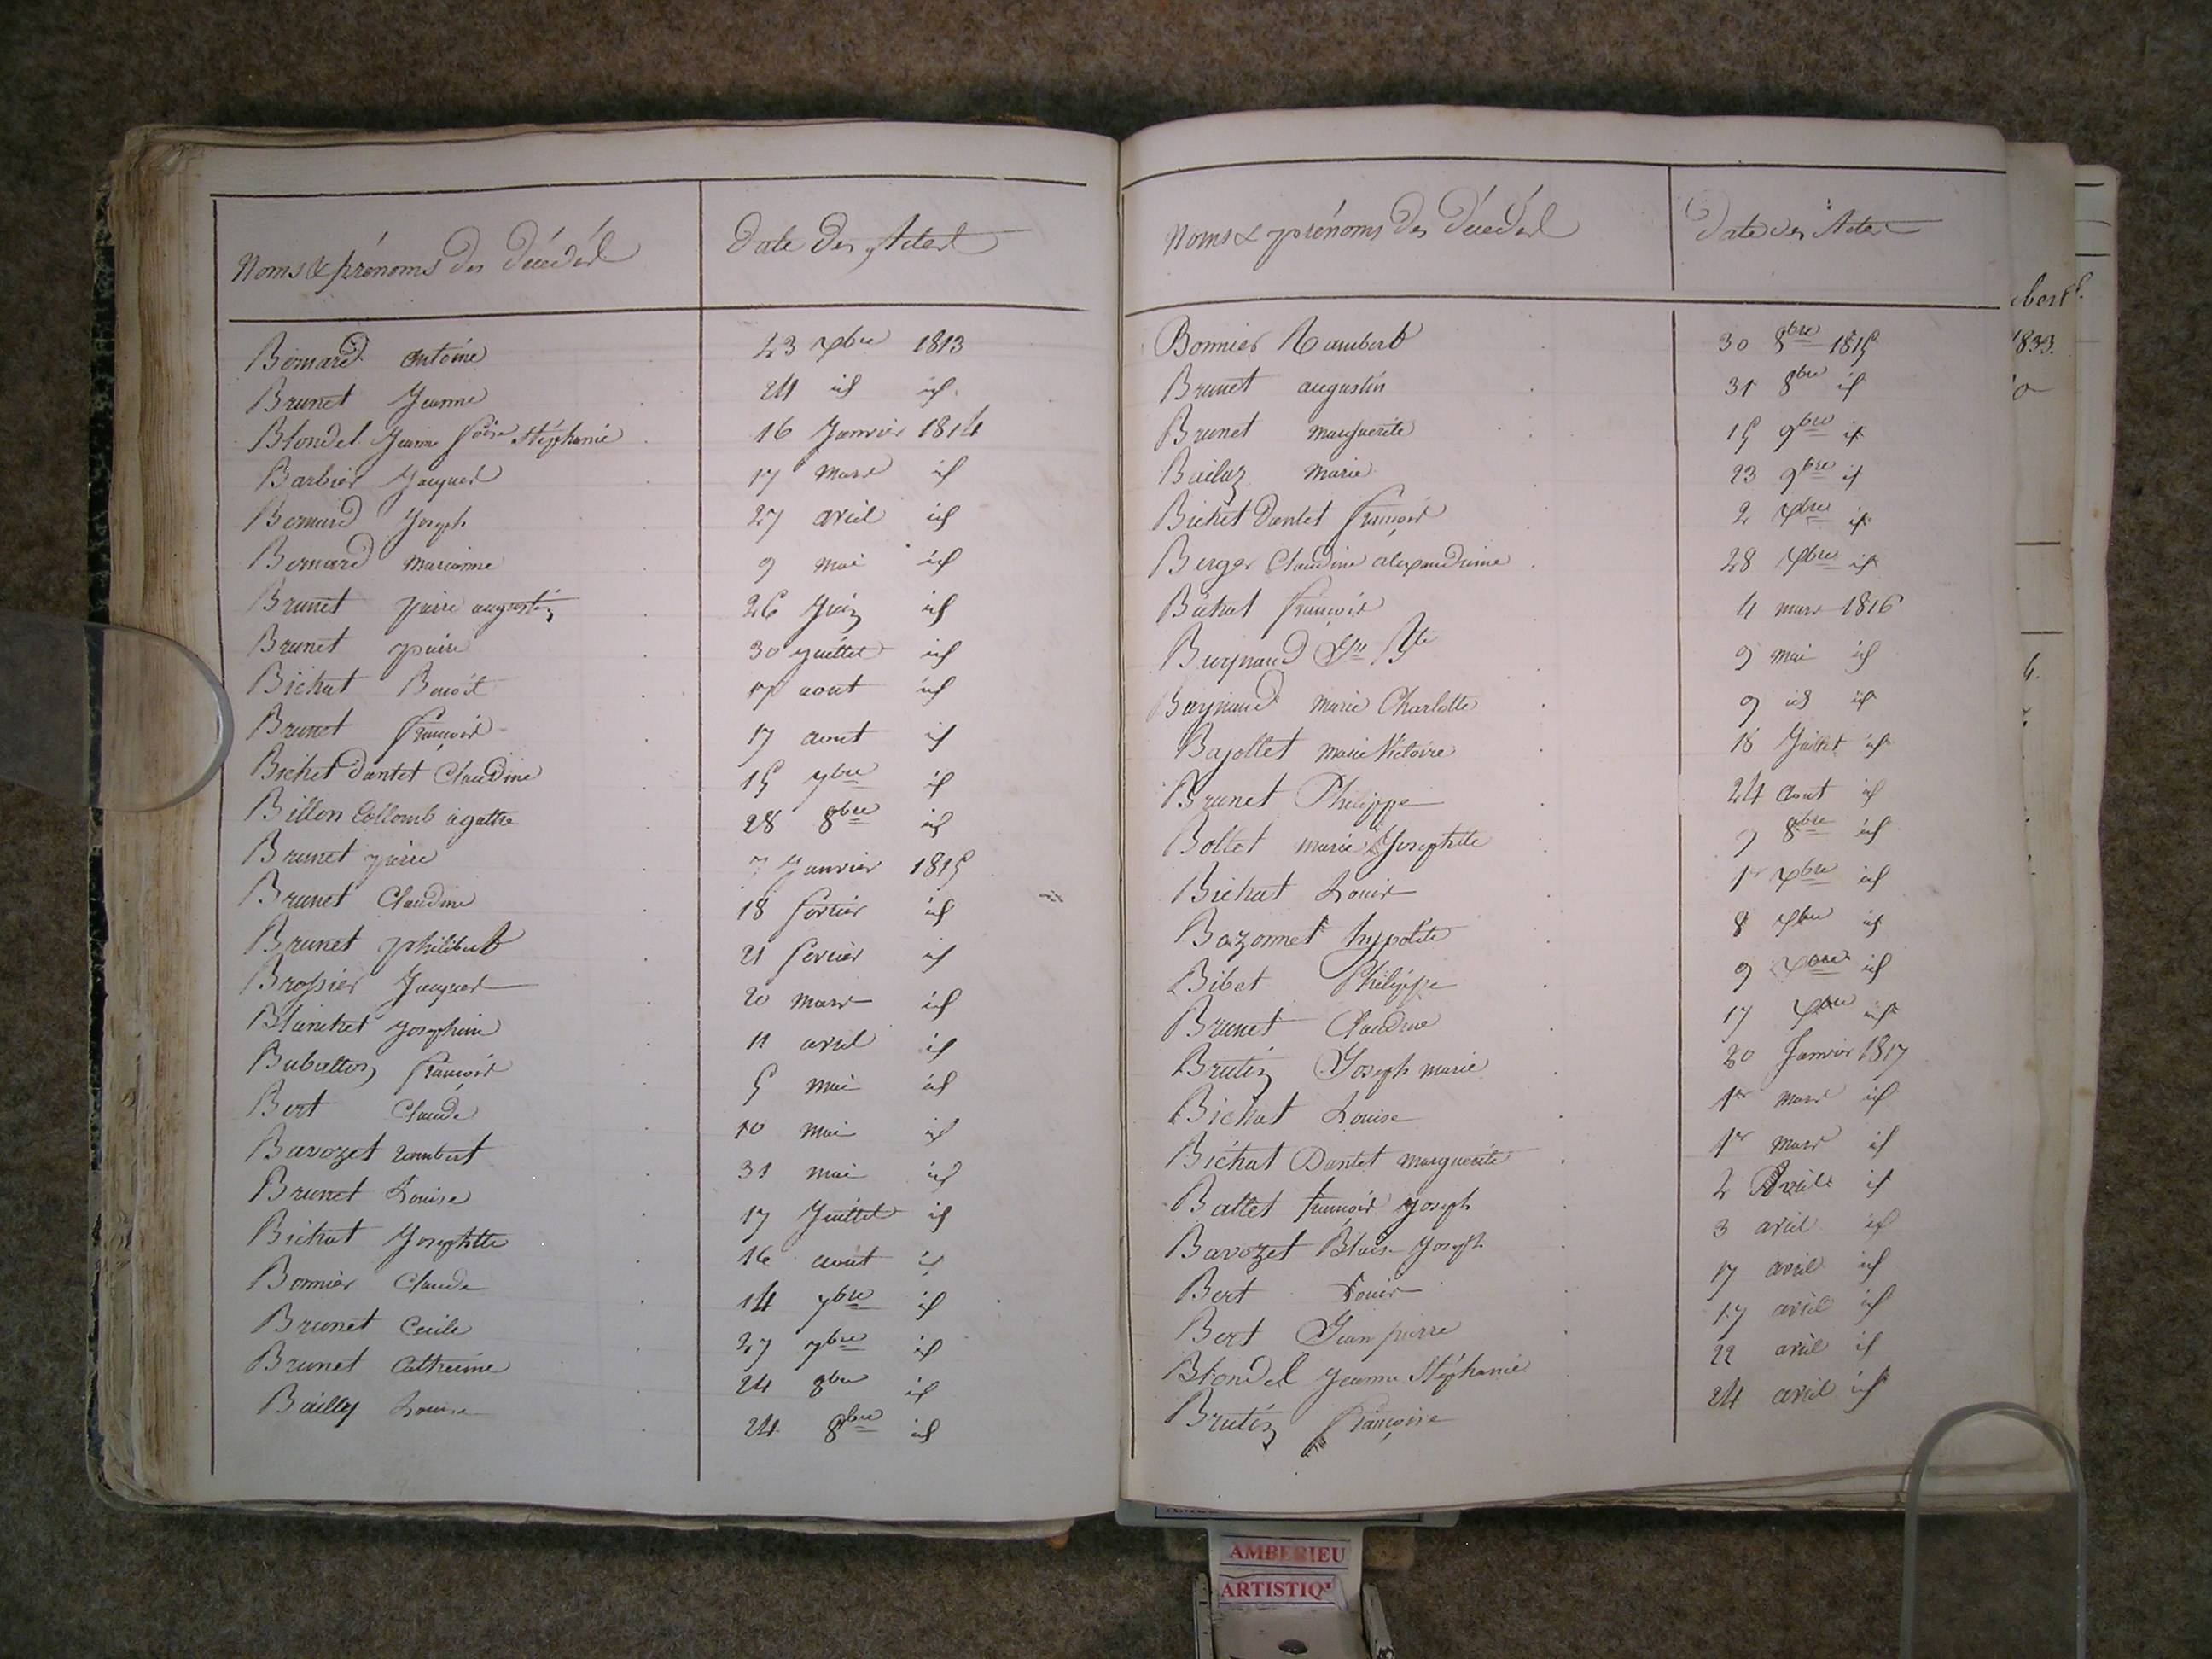 Noms & prénoms des Décédés Date des Actes
Bernard antoine 23 xbre 1813
Brunet Jeanne 24 id id
Blondel Jeanne Stéphanie 16 Janvier 1814
Barbier Jacques 17 mars id
Bernard Joseph 27 avril id
Bernard marianne 9 mai id
Brunet pierre augustin 26 Juin id
Brunet pierre 30 juillet id
Bichat Benoit 17 aout id
Brunet françois 17 aout id
Bichet dantet Claudine 15 7bre id
Billon Collomb agathe 28 8bre id
Brunet pierre 7 Janvier 1815
Brunet Claudine 18 fevrier id
Brunet philibert 21 fevrier id
Brossier Jacques 20 mars id
Blanchet josephine 11 avril id
Buballon françois 5 mai id
Bert Claude 10 mai id
Bavozet rambert 31 mai id
Brunet Louise 17 Juillet id
Bichat Josephtte 16 aout id
Bonnier Claude 14 7bre id
Brunet Cecile 27 7bre id
Brunet Catherine 24 8bre id
Bailly Louise 24 8bre id
Noms & prénoms des Décédés Date des Actes
Bonnier Rambert 30 8bre 1815
Brunet augustin 31 8bre id
Brunet marguerite 15 9bre id
Bailaz marie 23 9bre id
Bichet Dantet françois 2 xbre id
Berger Claudine alexandrine 28 xbre id
Bichat françois 4 mars 1816
Buynaud 9 mai id
Buynaud marie Charlotte 9 id id
Bajollet marie Victoire 18 Juillet id
Brunet Philippe 24 aout id
Bollet marie Josephtte 9 8bre id
Bichat Louis 1er xbre id
Bozonnet hypolite 8 xbre id
Bibet Philippe 9 xbre id
Brunet Claudine 17 xbre id
Brutin Joseph marie 20 Janvier 1817
Bichat Louise 1er mars id
Bichat Dantet marguerite 1er mars id
Ballet françois joseph 2 Avril id
Bavozet Blaise Joseph 3 avril id
Bert Louis 17 avril id
Bert Jean pierre 17 avril id
Blondel jeanne Stéphanie 22 avril id
Brutin françoise 24 avril id
1833.
AMBERIEU
ARTISTIQ